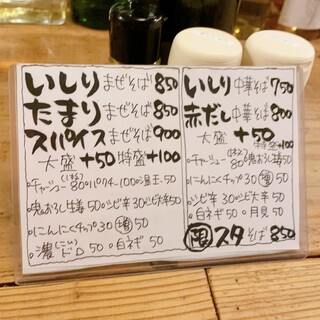 いしり まぜそば 850
たまり まぜそば 850
スパイス まぜそば 900
大盛 +50 特盛 +100
チャーシュー 80
温玉 50
鬼おろし生姜 50
にんにくチップ 30
50
白ネギ 50
いしり 中華そば 750
赤だし 中華そば 800
大盛 +50
特盛 +100
チャーシュー 80
鬼おろし生姜 50
にんにくチップ 30
50
白ネギ 50
月見 50
限 スタそば 850